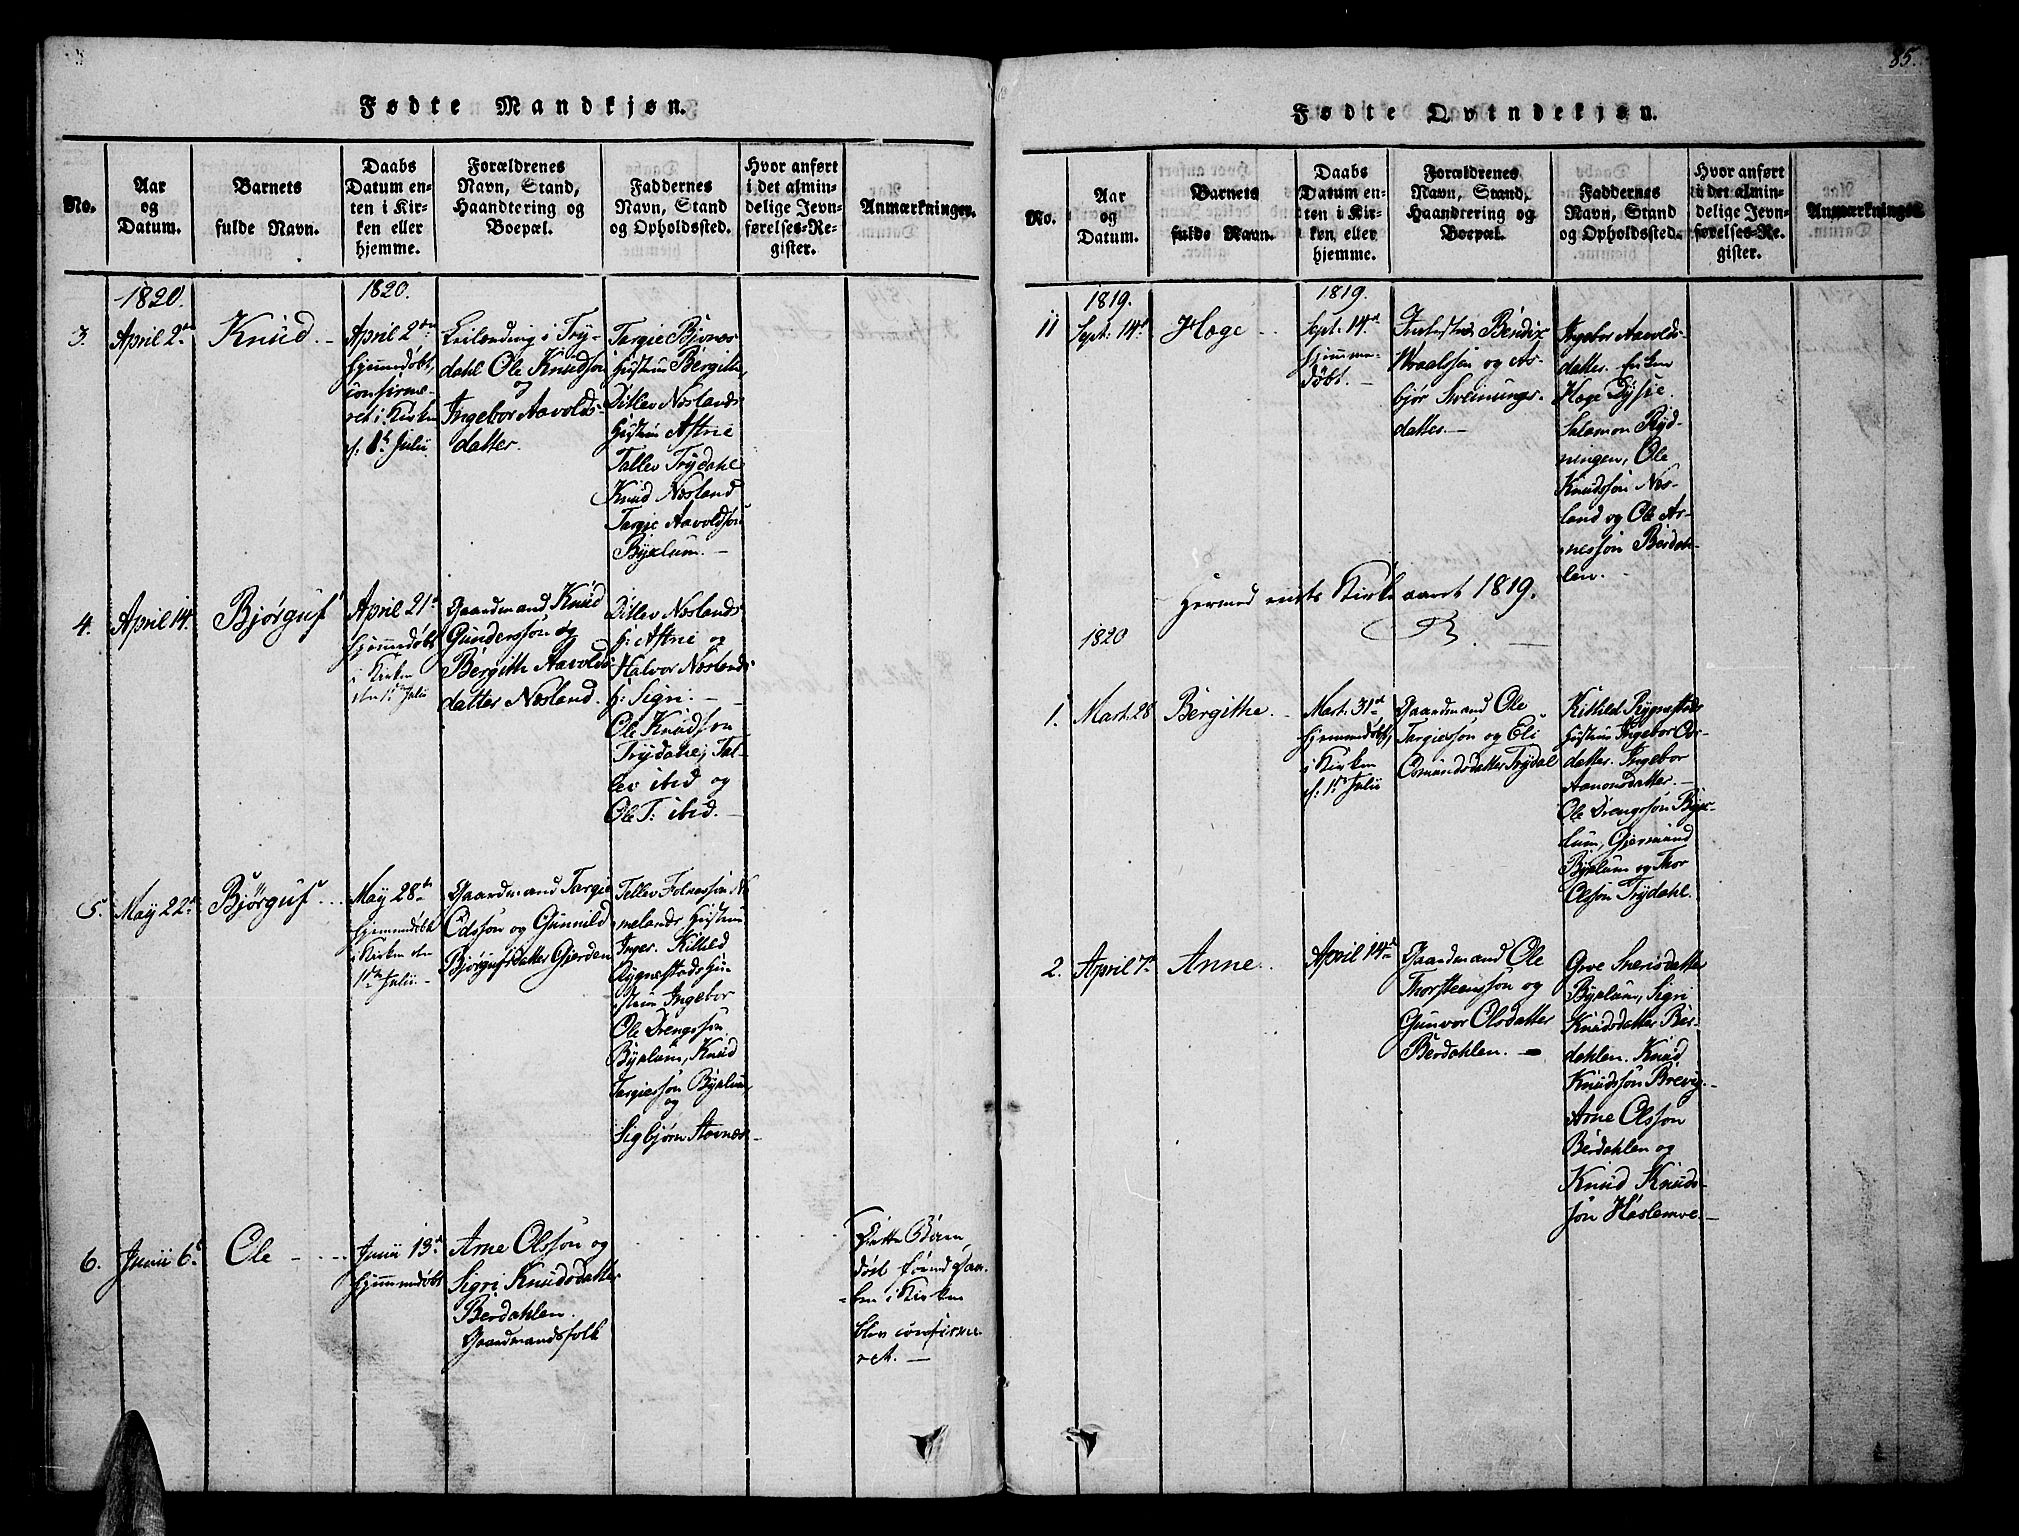 85.
Fødte Mandkjøn.
No.
Aar
og
Datum.
Barnets
fulde Navn.
Daabs
Datum en-
ten i Kir-
ken eller
hjemme.
Forældrenes
Navn, Stand,
Haandtering og
Boepæl.
Faddernes
Navn, Stand
og Opholdssted.
Hvor anført
i det almin-
delige Jevn-
førelses-Re-
gister.
Anmærkninger.
1820.
3.
April 2den
Knud.
1820.
April 2den
hjemmedøbt,
confirme-
ret i Kirken
d: 1ste Julii
Leilænding i Try-
dahl Ole Knudsøn
og
Ingebor Aavolds-
datter.
Targie Bjønes
Hustrue Bergithe,
Ditlev Næslands
Hustrue Astrie
Tallev Trydahl
Knud Næsland
Targie Aavoldsøn
Byklum.
4.
April 14.
Bjørguf
April 21de
hjemmedøbt
i Kirken
den 1ste Julii
Gaardmand Knud
Gundersson og
Bergith Aavolds-
datter Næsland.
Ditlev Næslands
H: Astrie og
Halvor Næslands
H: Sigri.
Ole Knudsøn
Trydahl, Tal-
lev ibid og
Ole T: ibid.
5.
May 22de
Bjørguf
May 28de
hjemmedøbt
i Kirken den
1ste Julii.
Gaardmand Targie
Odsson og Gunnild
Bjørgufsdatter Gjerden
Tellev Folkesson
melands Hustrue
Inger. Kittild
Rygnestads Hu-
strue Ingebor
Ole Drengsson
Byklum, Knud
Targiesson Byklum,
og
Sigbjørn Hovnes.
6.
Junii 6te
Ole
Junii 13de
hjemmedøbt
Arne Olsson og
Sigri Knudsdatter
Berdahlen.
Gaardmandsfolk
Dette Børn
døde førend Daa-
ben i Kirken
blev confirme-
ret.
Fødte Qvindekjøn.
No.
Aar
og
Datum.
Barnets
fulde Navn.
Daabs
Datum en-
ten i Kir-
ken eller
hjemme.
Forældrenes
Navn, Stand,
Haandtering og
Boepæl.
Faddernes
Navn, Stand
og Opholdssted.
Hvor anført
i det almin-
delige Jevn-
førelses-Re-
gister.
Anmærkninger.
1819.
11
Sept: 14de
Hæge
1819.
Sept: 14de
hjemme-
døbt.
Inderstes Bendix
Wraalsøn og As-
bjør Sveinungs-
datter.
Ingebor Aavolds-
datter. Enken
Hæge Tysie.
Salamon Ryd-
ningen, Ole
Knudssøn Næs-
land og Ole Ar-
nessøn Berdah-
len.
Hermed endts Kirke aaret 1819.
1820
1.
Mart. 28
Bergithe.
Mart. 31de
hjemmedøbt,
i Kirken
d: 1ste Julii
Gaardmand Ole
Targiesson og Eli
Osmundsdatter Trydal
Kittild Rygnestads
Hustrue Ingebor Os-
datter. Ingebor
Aamonsdatter.
Ole Drengssøn Byk-
lum, Gjermund
Byklum og Thor
Olsson Trydahl.
2.
April 7de
Anne.
April 14de
Gaardmand Ole
Thorsteenssøn og
Gunvor Olsdatter
Berdahlen.
Groe Sverisdatter
Byklum, Sigri
Knudsdatter Ber-
dahlen. Knud
Knudssøn Brevig.
Arne Olsson
Berdahlen og
Knud Knuds-
søn Haslemoe.